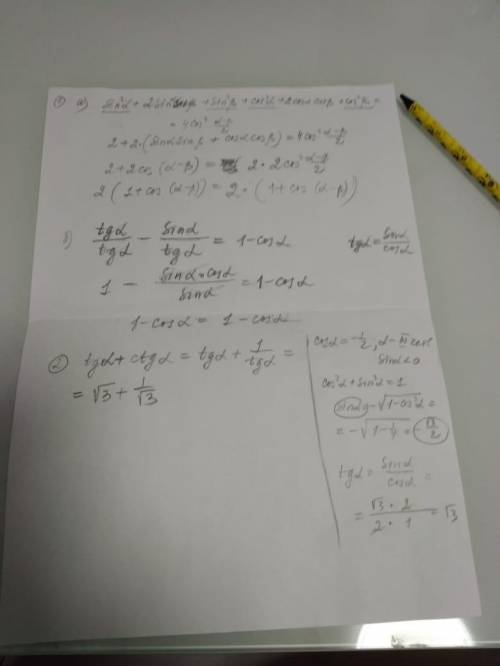 ① а) sin²α + 2sinα sinβ + sin²β + cos²α + 2cosα cosβ + cos²β =
= 4cos² (α-β)/2
2+2·(sinα sinβ + cosα cosβ) = 4cos² (α-β)/2
2+2cos (α-β) = 2·2cos² (α-β)/2
2(1+cos (α-β)) = 2·(1+cos (α-β))
б) tgα/tgα - sinα/tgα = 1-cosα
tgα = sinα/cosα
1 - sinα·cosα/sinα = 1-cosα
1-cosα = 1-cosα
② tgα + ctgα = tgα + 1/tgα =
= √3 + 1/√3
cosα = -1/2, α-III
sinα<0
cos²α + sin²α = 1
sinα = -√1-cos²α =
= -√1-1/4 = -√3/2
tgα = sinα/cosα =
= √3·2/2·1 = √3